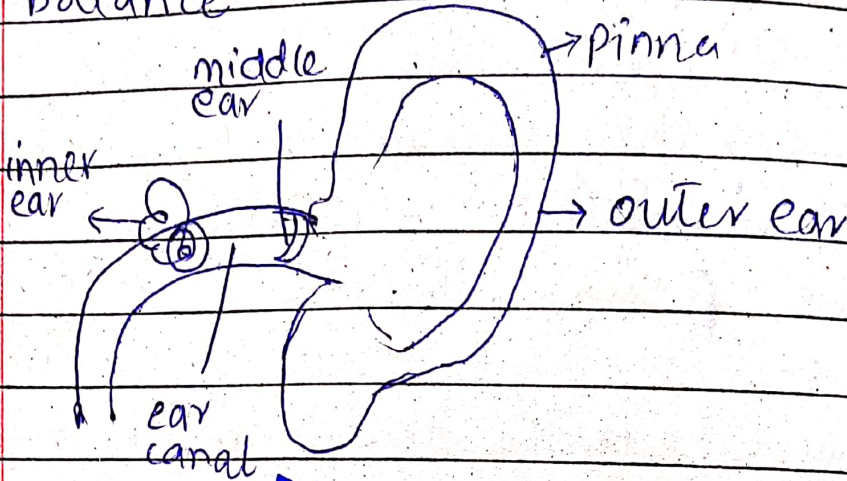 Ballance
middle
ear
pinna
inner
ear
outer ear
ear
canal